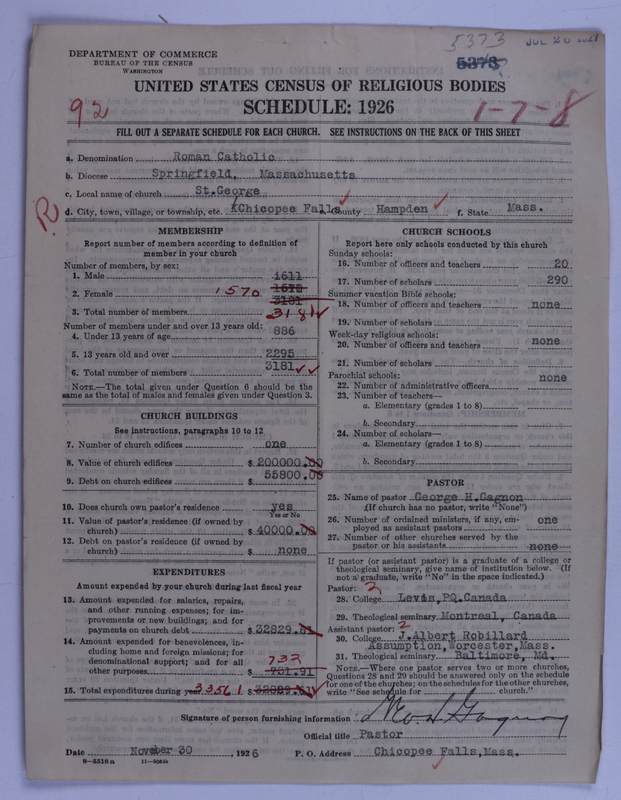 5373
JUL 20 1927
DEPARTMENT OF COMMERCE
BUREAU OF THE CENSUS
WASHINGTON
5373
UNITED STATES CENSUS OF RELIGIOUS BODIES
SCHEDULE: 1926
92
1-7-8
FILL OUT A SEPARATE SCHEDULE FOR EACH CHURCH. SEE INSTRUCTIONS ON THE BACK OF THIS SHEET
a. Denomination Roman Catholic
b. Diocese Springfield, Massachusetts
c. Local name of church St.George
R
d. City, town, village, or township, etc. Chicopee Falls County Hampden f. State Mass.
MEMBERSHIP
Report number of members according to definition of
member in your church
Number of members, by sex:
1. Male 1611
2. Female 1570
3. Total number of members 3181
Number of members under and over 13 years old:
4. Under 13 years of age 886
5. 13 years old and over 2295
6. Total number of members 3181
NOTE.—The total given under Question 6 should be the
same as the total of males and females given under Question 3.
CHURCH BUILDINGS
See instructions, paragraphs 10 to 12
7. Number of church edifices one
8. Value of church edifices $ 200000.00
9. Debt on church edifices $ 55800.00
10. Does church own pastor's residence yes
Yes or No
11. Value of pastor's residence (if owned by
church) $ 40000.00
12. Debt on pastor's residence (if owned by
church) $ none
EXPENDITURES
Amount expended by your church during last fiscal year
13. Amount expended for salaries, repairs,
and other running expenses; for im-
provements or new buildings; and for
payments on church debt $ 32829.
14. Amount expended for benevolences, in-
cluding home and foreign missions; for
denominational support; and for all
other purposes 732 $ 731.91
15. Total expenditures during year 33561 $
CHURCH SCHOOLS
Report here only schools conducted by this church
Sunday schools:
16. Number of officers and teachers 20
17. Number of scholars 290
Summer vacation Bible schools:
18. Number of officers and teachers none
19. Number of scholars
Week-day religious schools:
20. Number of officers and teachers none
21. Number of scholars
Parochial schools:
22. Number of administrative officers none
23. Number of teachers—
a. Elementary (grades 1 to 8)
b. Secondary
24. Number of scholars—
a. Elementary (grades 1 to 8)
b. Secondary
PASTOR
25. Name of pastor George H.Gagnon
(If church has no pastor, write "None")
26. Number of ordained ministers, if any, em-
ployed as assistant pastors one
27. Number of other churches served by the
pastor or his assistants none
If pastor (or assistant pastor) is a graduate of a college or
theological seminary, give name of institution below. (If
not a graduate, write "No" in the space indicated.)
Pastor: 2
28. College Levis,PQ.Canada
29. Theological seminary Montreal, Canada
Assistant pastor: 2
J.Albert Robillard
30. College Assumption,Worcester,Mass.
31. Theological seminary Baltimore, Md.
NOTE.—Where one pastor serves two or more churches,
Questions 28 and 29 should be answered only on the schedule
for one of the churches; on the schedules for the other churches,
write "See schedule for church."
Signature of person furnishing information Geo H Gagnon
Official title Pastor
Date November 30, 1926 P. O. Address Chicopee Falls,Mass.
8—5518a 11—9054b